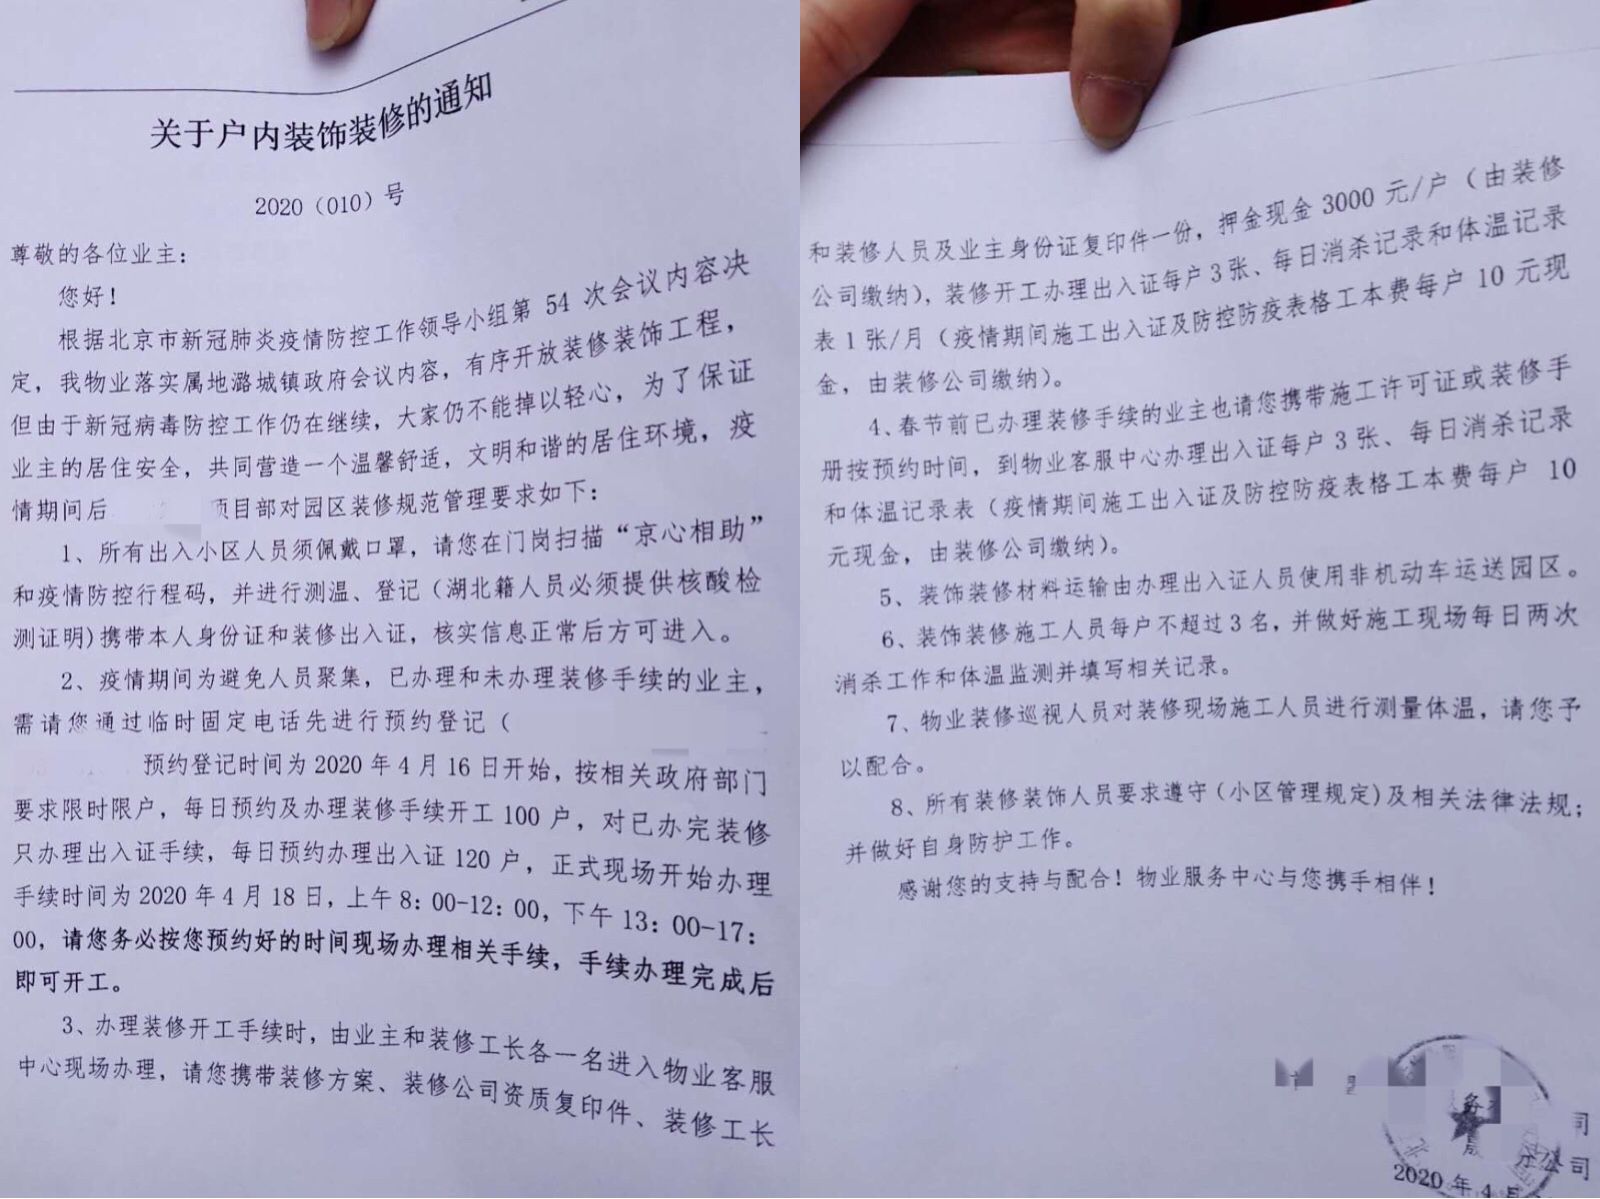 关于户内装饰装修的通知
2020（010）号
尊敬的各位业主：
您好！
根据北京市新冠肺炎疫情防控工作领导小组第 54 次会议内容决
定，我物业落实属地潞城镇政府会议内容，有序开放装修装饰工程，
但由于新冠病毒防控工作仍在继续，大家仍不能掉以轻心，为了保证
业主的居住安全，共同营造一个温馨舒适，文明和谐的居住环境，疫
情期间后 项目部对园区装修规范管理要求如下：
1、所有出入小区人员须佩戴口罩，请您在门岗扫描“京心相助”
和疫情防控行程码，并进行测温、登记（湖北籍人员必须提供核酸检
测证明)携带本人身份证和装修出入证，核实信息正常后方可进入。
2、疫情期间为避免人员聚集，已办理和未办理装修手续的业主，
需请您通过临时固定电话先进行预约登记（
预约登记时间为 2020 年 4 月 16 日开始，按相关政府部门
要求限时限户，每日预约及办理装修手续开工 100 户，对已办完装修
只办理出入证手续，每日预约办理出入证 120 户，正式现场开始办理
手续时间为 2020 年 4 月 18 日，上午 8：00-12：00，下午 13：00-17：
00，请您务必按您预约好的时间现场办理相关手续，手续办理完成后
即可开工。
3、办理装修开工手续时，由业主和装修工长各一名进入物业客服
中心现场办理，请您携带装修方案、装修公司资质复印件、装修工长
和装修人员及业主身份证复印件一份，押金现金 3000 元/户（由装修
公司缴纳），装修开工办理出入证每户 3 张、每日消杀记录和体温记录
表 1 张/月（疫情期间施工出入证及防控防疫表格工本费每户 10 元现
金，由装修公司缴纳）。
4、春节前已办理装修手续的业主也请您携带施工许可证或装修手
册按预约时间，到物业客服中心办理出入证每户 3 张、每日消杀记录
和体温记录表（疫情期间施工出入证及防控防疫表格工本费每户 10
元现金，由装修公司缴纳）。
5、装饰装修材料运输由办理出入证人员使用非机动车运送园区。
6、装饰装修施工人员每户不超过 3 名，并做好施工现场每日两次
消杀工作和体温监测并填写相关记录。
7、物业装修巡视人员对装修现场施工人员进行测量体温，请您予
以配合。
8、所有装修装饰人员要求遵守（小区管理规定)及相关法律法规；
并做好自身防护工作。
感谢您的支持与配合！物业服务中心与您携手相伴！
司
分公司
2020 年 4